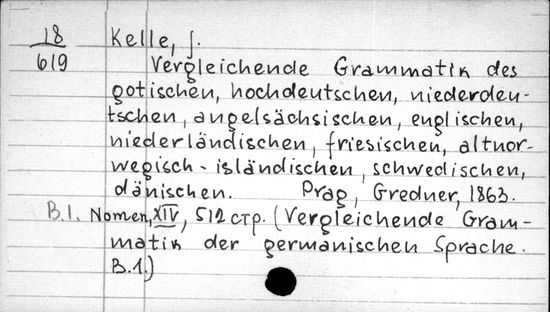 18
619
Kelle, J.
Vergleichende Grammatik des
gotischen, hochdeutschen, niederdeu-
tschen, angelsächsischen, englischen,
niederländischen, friesischen, altnor-
wegisch-isländischen, schwedischen,
dänischen. Prag, Gredner, 1863.
B.1. Nomen, XIV, 512 стр. (Vergleichende Gram-
matik der germanischen Sprache.
B.1.)